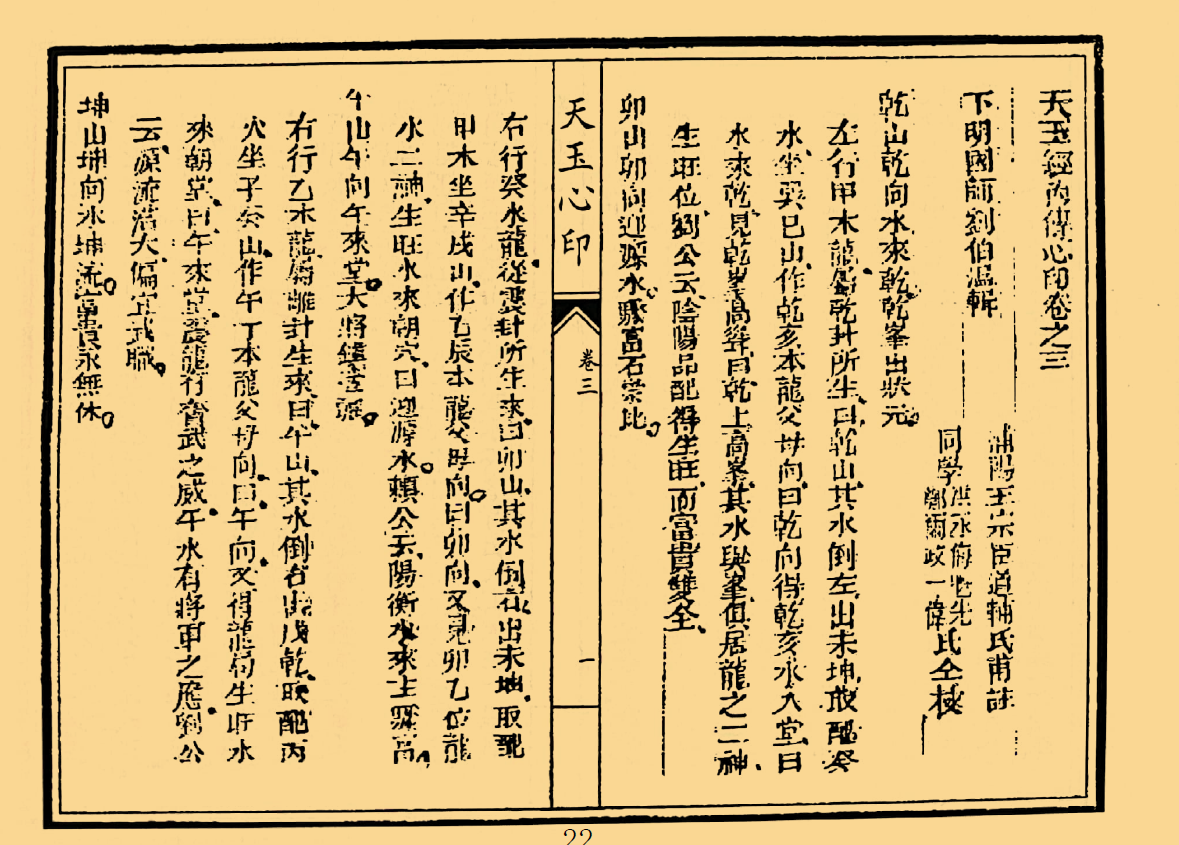 天玉經內傳心印卷之三
浦陽王宗臣道輔氏甫註
下明國師劉伯溫輯
同學洪永海兆先氏仝校
鄭爾政一偉
乾山乾向水來乾乾峯出狀元
左行甲木龍屬乾卦所生曰乾山其水倒左出未坤取配癸
水坐巽巳山作乾亥本龍父母向曰乾向得乾亥水入堂曰
水來乾見乾峯高聳曰乾上高峯其水與峯俱居龍之二神
生旺位劉公云陰陽品配得生旺而富貴雙全
卯山卯向迎源水驟富石崇比
天玉心印
卷三
一
右行癸水龍從震卦所生來曰卯山其水倒右出未坤取配
甲木坐辛戌山作乙辰本龍父母向曰卯向又見卯乙位龍
水二神生旺水來朝穴曰迎源水賴公云陽衡水來主驟富
午山午向午來堂大將鎮邊疆
右行乙木龍屬離卦生來曰午山其水倒右出戌乾取配丙
穴坐子癸山作午丁本龍父母向曰午向又得龍局生旺水
來朝堂曰午來堂震龍行賁武之威午水有將軍之應劉公
云源流浩大偏宜武職
坤山坤向水坤流富貴永無休
22